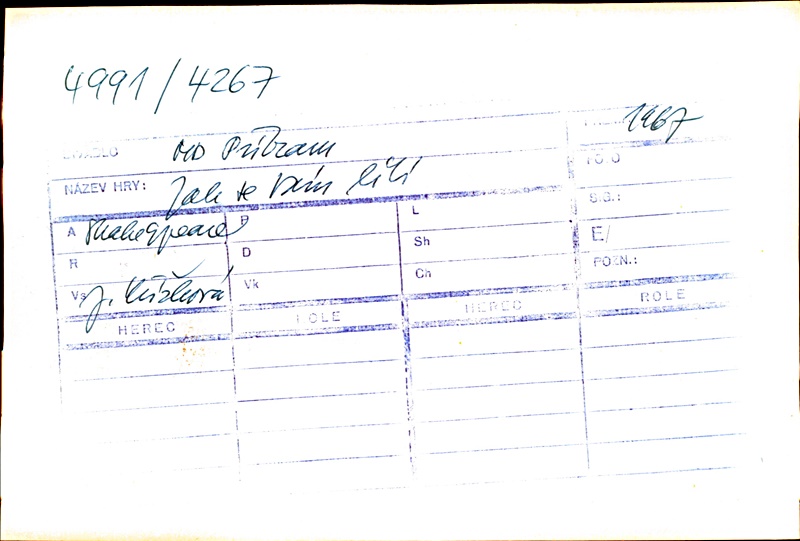 4991/4267
DIVADLO MD Příbram 1967
NÁZEV HRY: Jak se Vám líbí FOTO
S.G.:
A Shakespeare P L E/
R D Sh POZN.:
Vs J. Vk Ch
HEREC ROLE HEREC ROLE